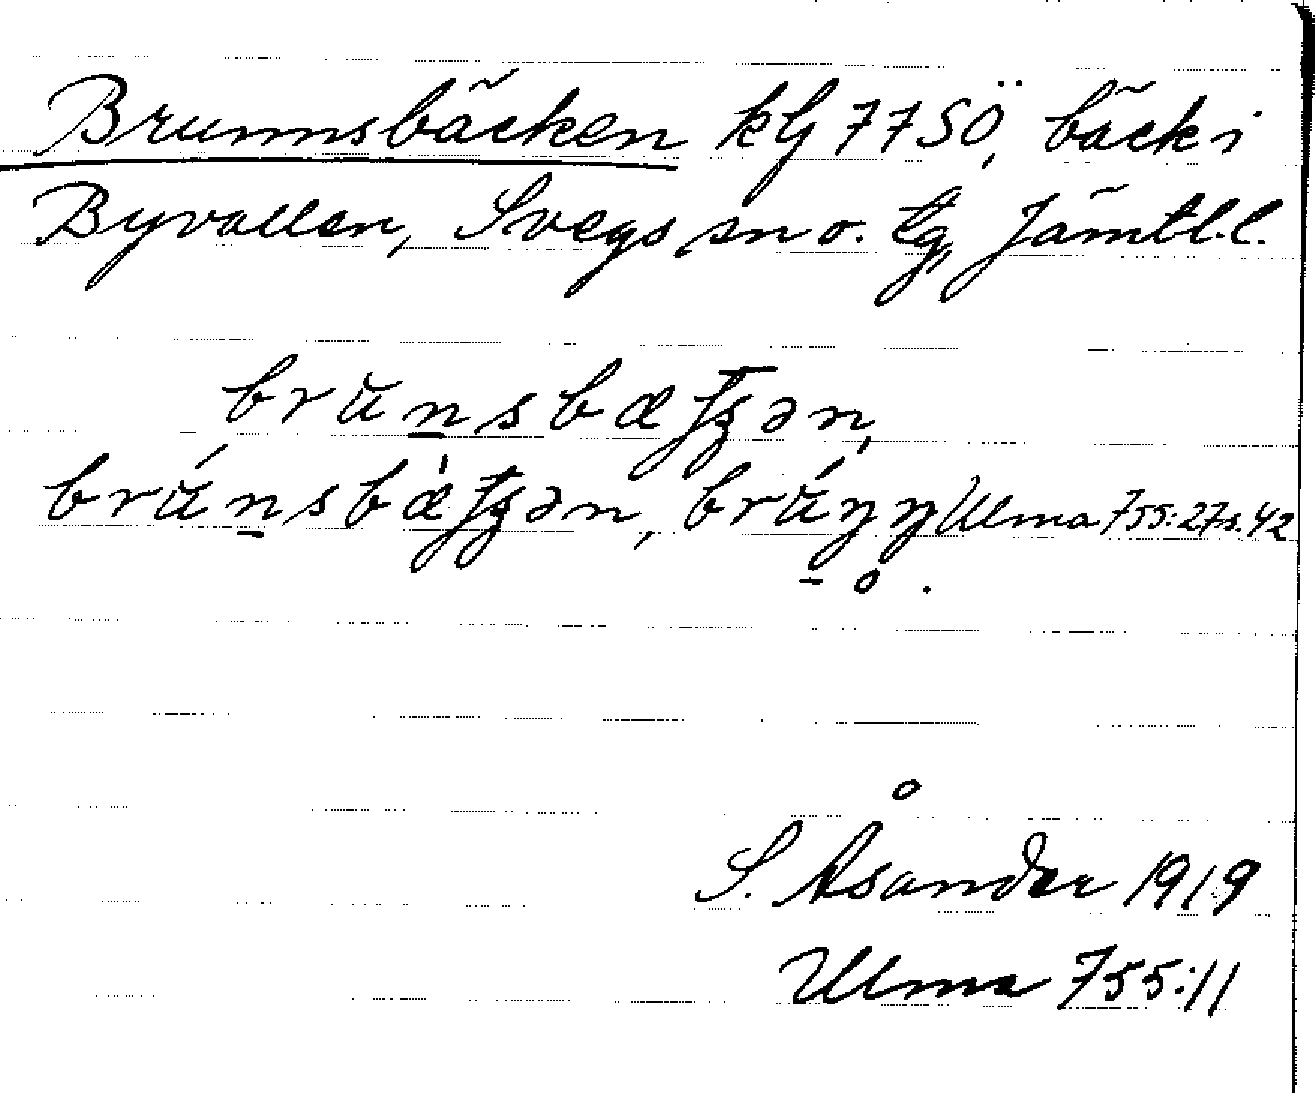 Brunnsbäcken kG 77 SÖ, bäck i
Byvallen, Svegs sn o. tg, Jämtl. l.
Ulma 755:27 s. 42
S. Åsander 1919
Ulma 755:11